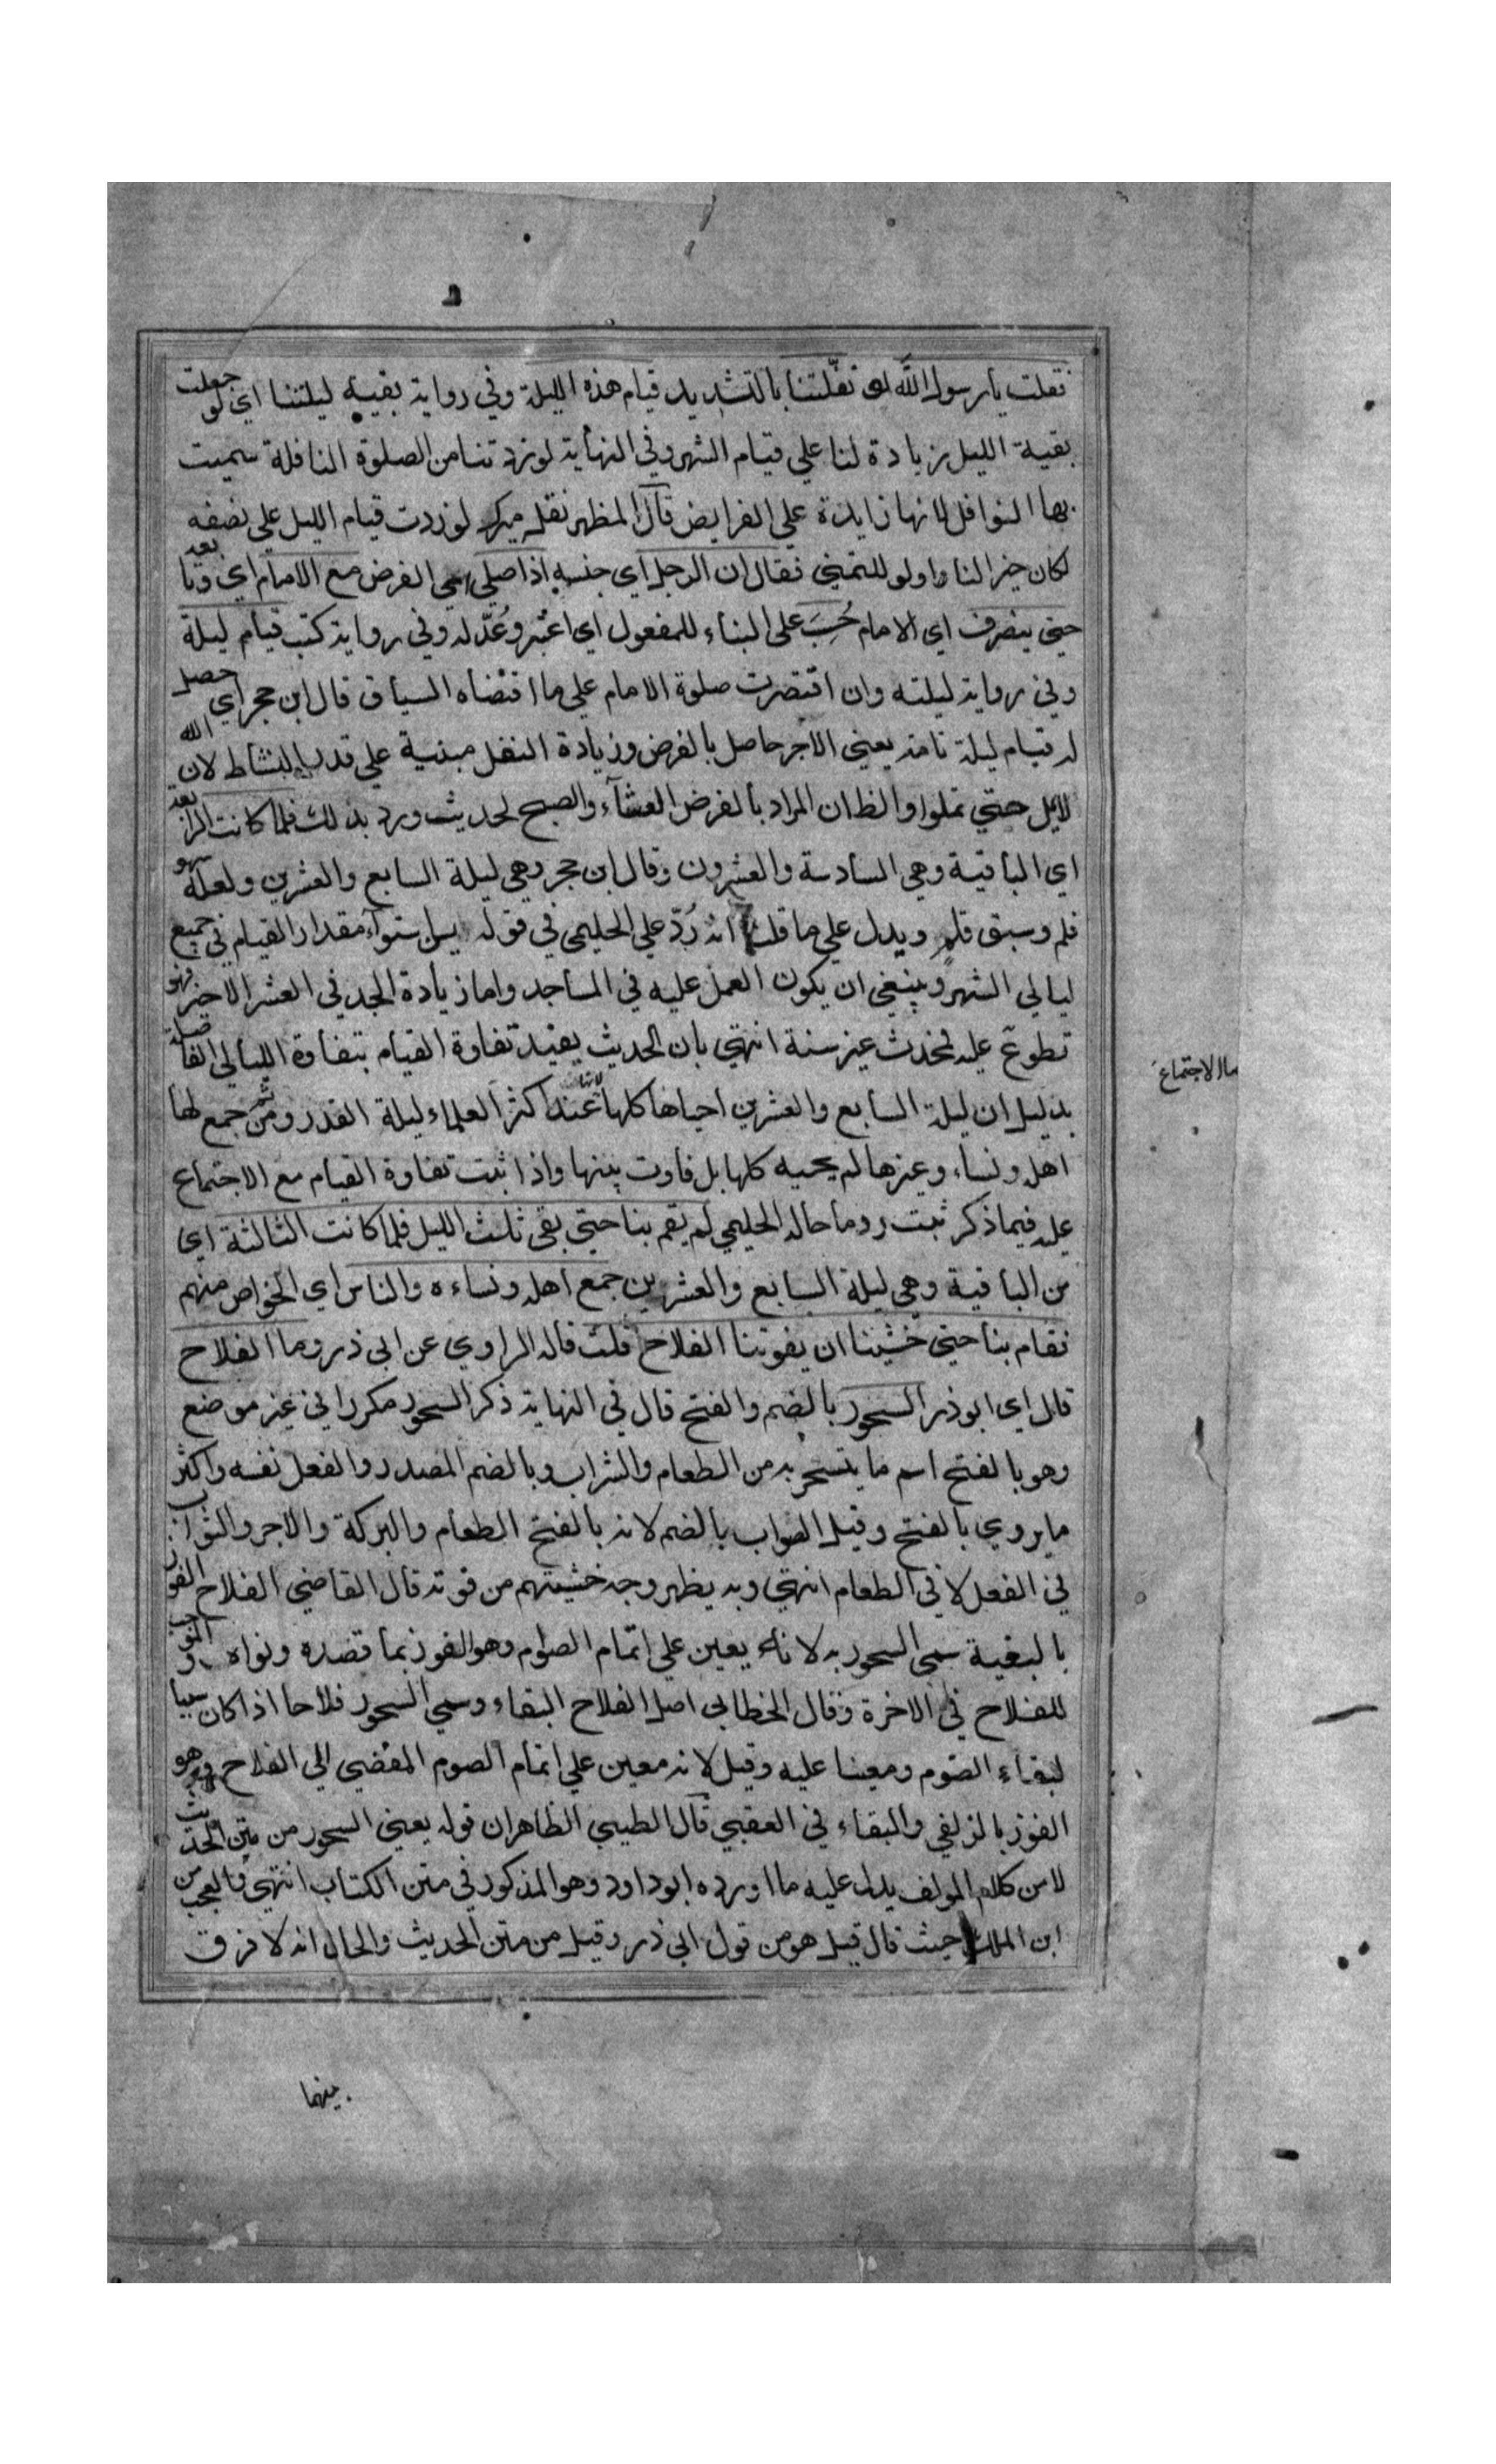 فقلت يا رسول الله لو نفّلتنا بالتشديد قيام هذه الليلة وفي رواية بقية ليلتنا اي لو جعلت
بقية الليل زيادة لنا علي قيام الشهر وفي النهاية لو زدتنا من الصلوة النافلة سميت
بها النوافل لانها زايدة علي الفرايض قال المظهر نقله ميرك لو زدت قيام الليل علي نصفه
لكان خيرا لنا ولو للتمني فقال ان الرجل اي جنسه اذا صلي اي الفرض مع الامام اي وتابعه
حتي ينصرف اي الامام حُسِبَ علي البناء للمفعول اي اعتبر وعُدّ له وفي رواية كتب قيام ليلة
وفي رواية ليلته وان اقتصرت صلوة الامام علي ما اقتضاه السياق قال ابن حجر اي حصل
له قيام ليلة تامة يعني الاجر حاصل بالفرض وزيادة النفل مبنية علي قدر النشاط لان الله
لا يمل حتي تملوا والظ ان المراد بالفرض العشآء والصبح لحديث ورد بذلك فلما كانت الرابعة
اي الباقية وهي السادسة والعشرون وقال ابن حجر وهي ليلة السابع والعشرين ولعله سهو
قلم وسبق قلم ويدل علي ما قلنا انه رُدّ علي الحليمي في قوله يسن ستوآء مقدار القيام في جميع
ليالي الشهر وينبغي ان يكون العمل عليه في المساجد واما زيادة الجد في العشر الاخير فهو
تطوع عليه لمحدث غير سنة انتهي بان الحديث يفيد تفاوة القيام بتفاوة الليالي الفاضلة
بدليل ان ليلة السابع والعشرين احياها كلها لانها عند اكثر العلماء ليلة القدر ومن ثم جمع لها
اهله ونساءه وغيرها لم يحيه كلها بل فاوت بينها واذا ثبت تفاوة القيام مع الاجتماع
عليه فيما ذكر ثبت رد ما حاله الحليمي لم يقم بنا حتي بقي ثلث الليل فلما كانت الثالثة اي
من الباقية وهي ليلة السابع والعشرين جمع اهله ونساءه والناس اي الخواص منهم
فقام بنا حتي خشينا ان يفوتنا الفلاح قلت قاله الراوي عن ابي ذر وما الفلاح
قال اي ابو ذر السحور بالضم والفتح قال في النهاية ذكر السحور مكررا في غير موضع
وهو بالفتح اسم ما يتسحر به من الطعام والشراب وبالضم المصدر والفعل نفسه واكثر
ما يروي بالفتح وقيل الصواب بالضم لانه بالفتح الطعام والبركة والاجر والثواب
في الفعل لا في الطعام انتهي وبه يظهر وجه خشيتهم من فوته قال القاضي الفلاح الفوز
بالبغية سمي السحور به لانه يعين علي اتمام الصوم وهو الفوز بما قصده ونواه
للفلاح في الاخرة وقال الخطابي اصل الفلاح البقاء وسمي السحور فلاحا اذا كان سببا
لبقاء الصوم ومعينا عليه وقيل لانه معين علي اتمام الصوم المفضي الي الفلاح وهو
الفوز بالزلفي والبقاء في العقبي قال الطيبي الظاهر ان قوله يعني السحور من متن الحديث
لا من كلام المولف يدل عليه ما اورده ابو داود وهو المذكور في متن الكتاب انتهي فالعجب من
ابن الملك حيث قال قيل هو من قول ابي ذر وقيل من متن الحديث والحال انه لا فرق
بينهما
الاجتماع